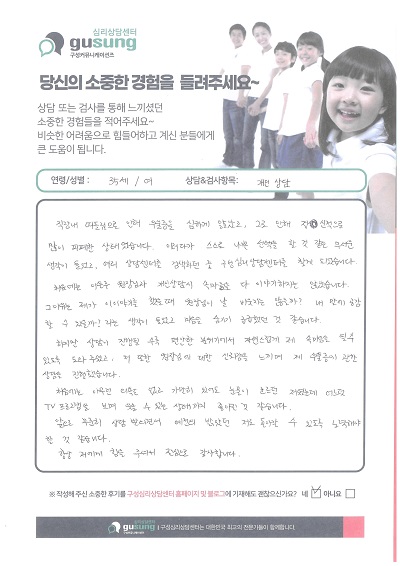 심리상담센터
gusung
구성커뮤니케이션즈
당신의 소중한 경험을 들려주세요~
상담 또는 검사를 통해 느끼셨던
소중한 경험들을 적어주세요~
비슷한 어려움으로 힘들어하고 계신 분들에게
큰 도움이 됩니다.
연령/성별 : 35세 / 여 상담&검사항목: 개인 상담
직장내 따돌림으로 인해 우울증을 심하게 앓았었고, 그로 인해
많이 피폐한 상태였습니다. 이러다가 스스로 나쁜 선택을 할 것 같은 무서운
생각이 들었고, 여러 상담센터를 검색하던 중 구성심리상담센터를 찾게 되었습니다.
처음에는 원장님과 개인상담시 속마음을 다 이야기하지는 않았습니다.
그 이유는 제가 이 이야기를 했을때 원장님이 날 비웃지는 않을까? 내 말에 공감
할 수 있을까? 라는 생각이 들었고 마음을 숨기기 급급했던 것 같습니다.
하지만 상담이 진행될 수록 편안한 분위기에서 자연스럽게 제 속마음을 털 수
있도록 도와주셨고, 저 또한 원장님에 대한 신뢰감을 느끼며 제 우울증에 관한
상담을 진행했습니다.
처음에는 아무런 의욕도 없고 가만히 있어도 눈물이 흐르던 저였는데 어느덧
TV 프로그램을 보며 웃을 수 있는 상태까지 좋아진 것 같습니다.
앞으로 꾸준히 상담 받으면서 예전의 밝았던 저로 돌아갈 수 있도록 노력해야
할 것 같습니다.
항상 저에게 힘을 주셔서 진심으로 감사합니다.
※ 작성해 주신 소중한 후기를 구성심리상담센터 홈페이지 및 블로그에 기재해도 괜찮으신가요? 네 아니요
심리상담센터
gusung
구성심리상담센터는 대한민국 최고의 전문가들이 함께합니다.